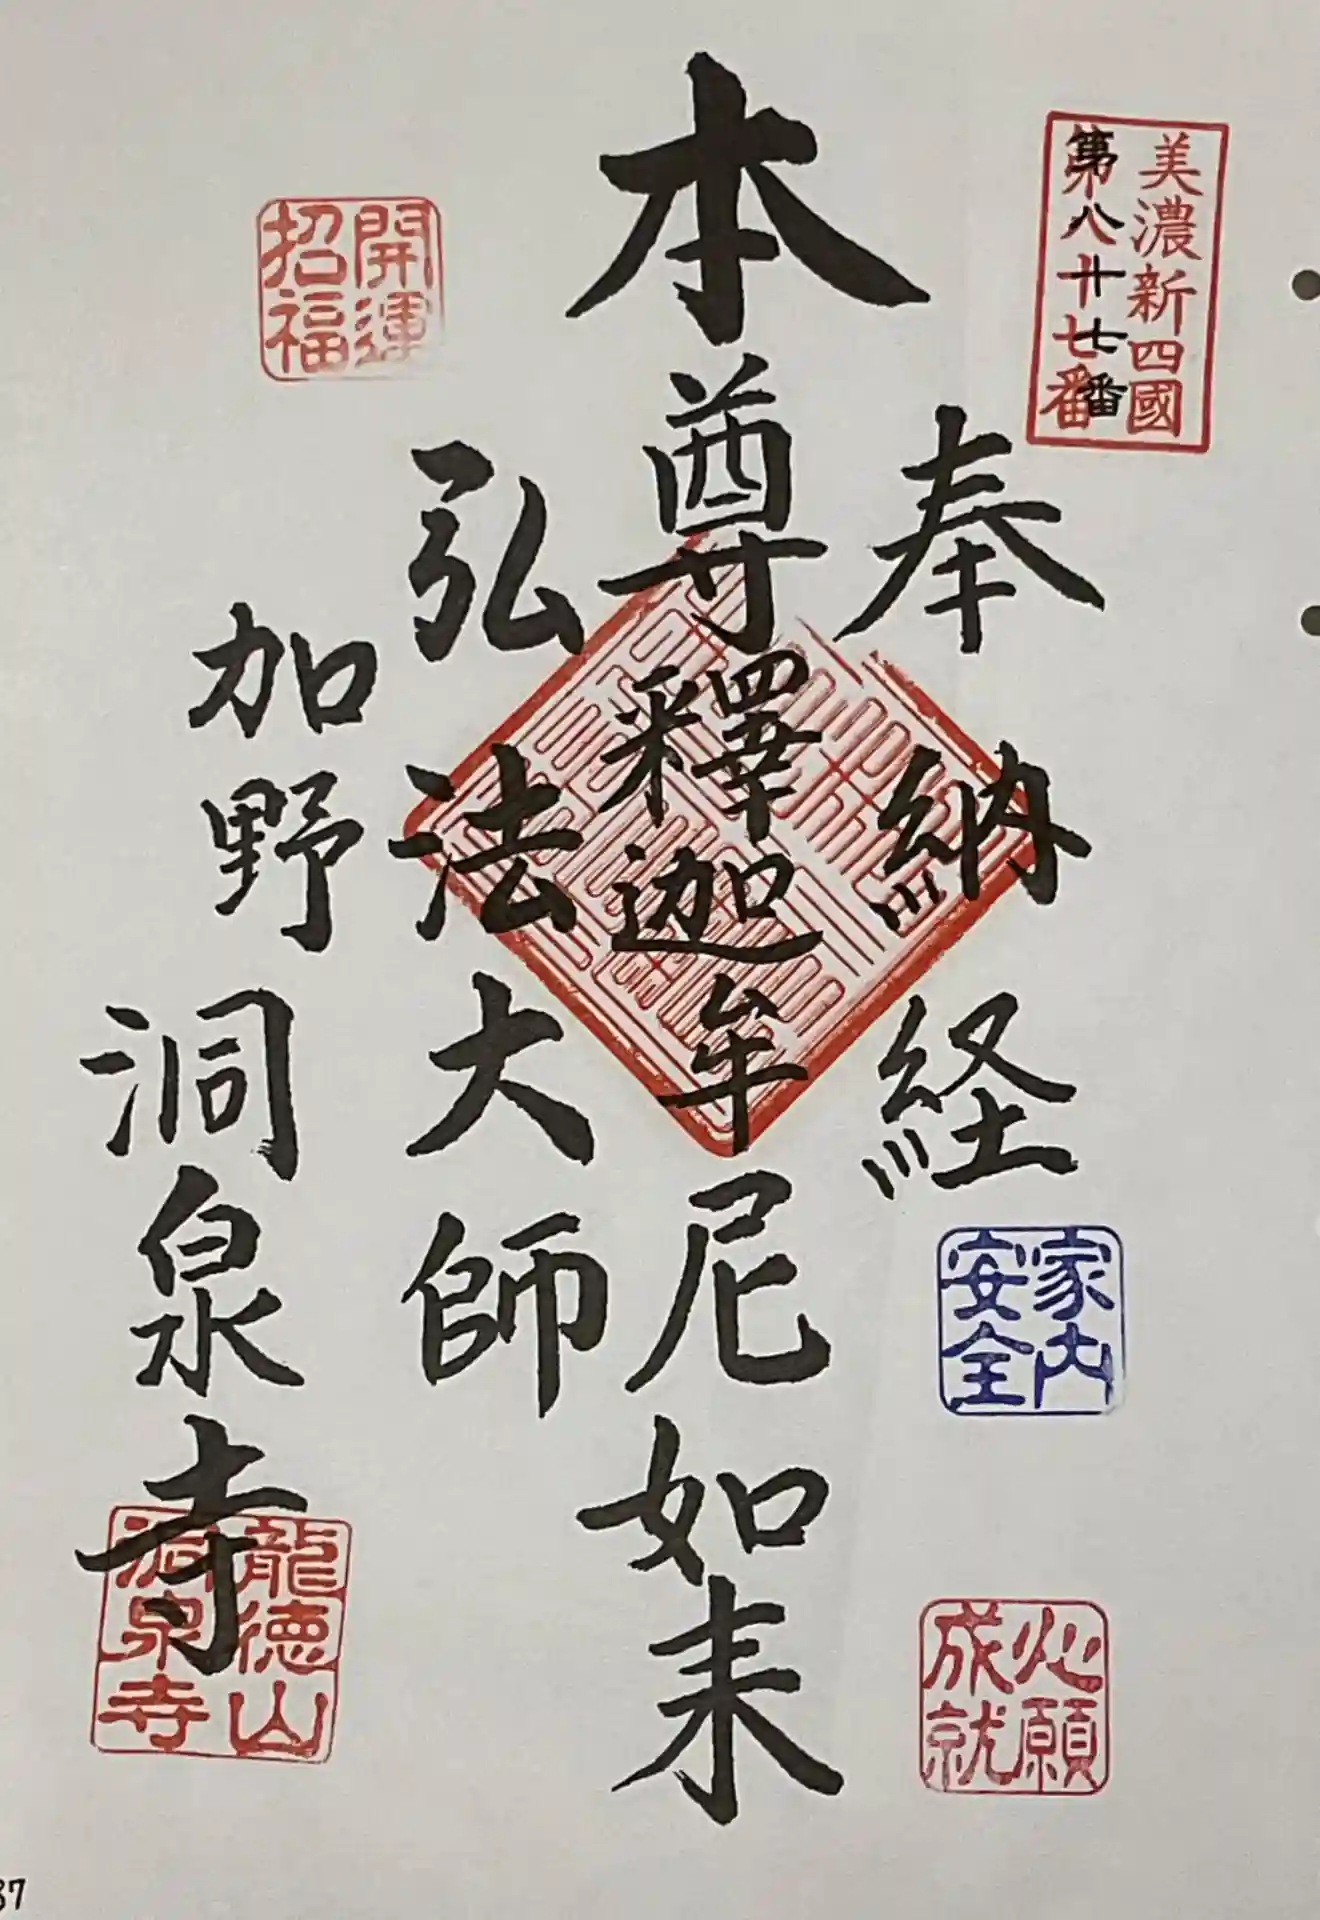 美濃新四國
第八十七番
奉納経
本尊釋迦牟尼如来
弘法大師
加野洞泉寺
開運
招福
家内
安全
心願
成就
龍徳山
洞泉寺
87